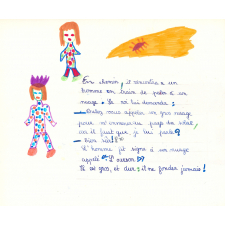 En chemin, il rencontra un
homme en train de parler à un
nuage. Le roi lui demanda :
— Peux-tu nous appeler un gros nuage
pour m'emmener au pays du soleil,
car il faut que je lui parle ?
— Bien sûr !
L'homme fit signe à un nuage
appelé "Le
Il est gros, et dur : il ne fondra jamais !